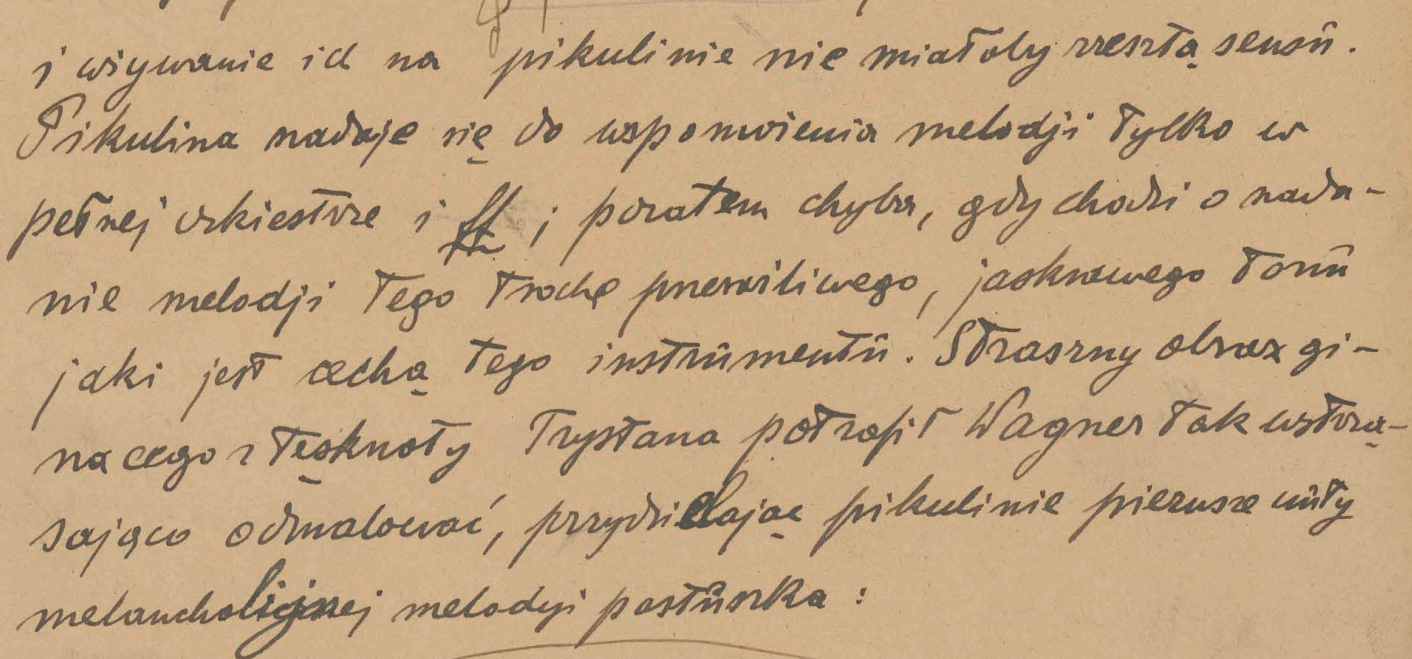 i używanie ich na pikulinie nie miałoby zresztą sensu.
Pikulina nadaje się do wzmocnienia melodji tylko w
pełnej orkiestrze i ff; pozatem chyba, gdy chodzi o nada-
nie melodji tego trochę przeraźliwego, jaskrawego tonu
jaki jest cechą tego instrumentu. Straszny obraz gi-
nącego z tęsknoty Trystana potrafił Wagner tak wstrzą-
sająco odmalować, przydzielając pikulinie pierwsze nuty
melancholijnej melodyi pastuszka: